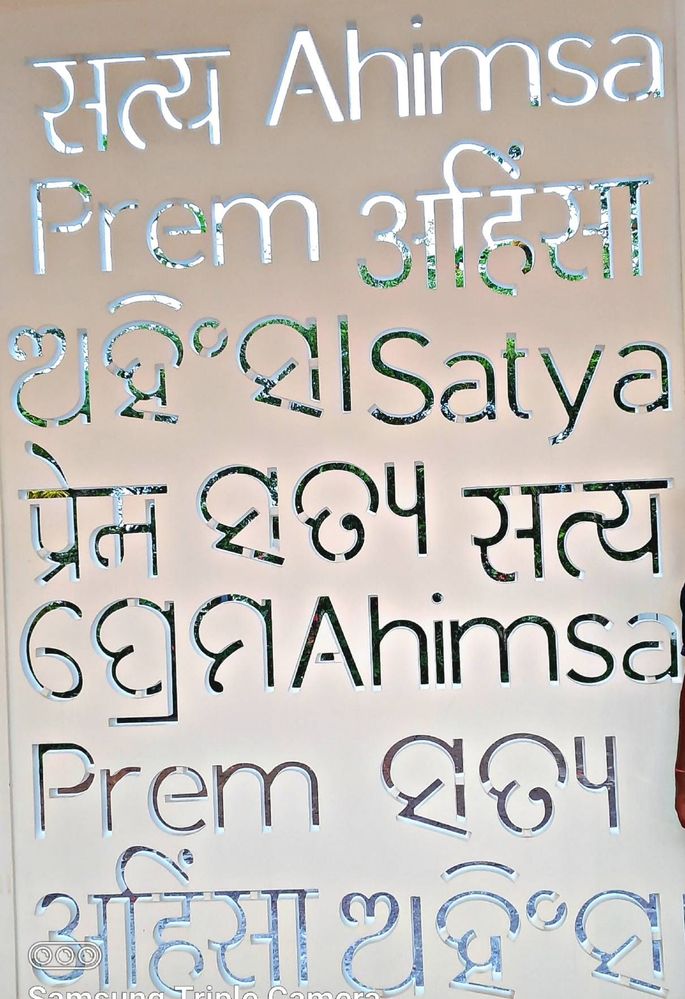 सत्य Ahimsa
Prem अहिंसा
ଅହିଂସା Satya
प्रेम ସତ୍ୟ सत्य
ପ୍ରେମ Ahimsa
Prem ସତ୍ୟ
अहिंसा ଅହିଂସା
Samsung Triple Camera